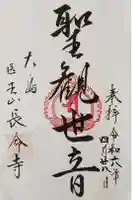 奉拝 令和六年
四月廿八日
聖観世音
大島
医王山 長命寺